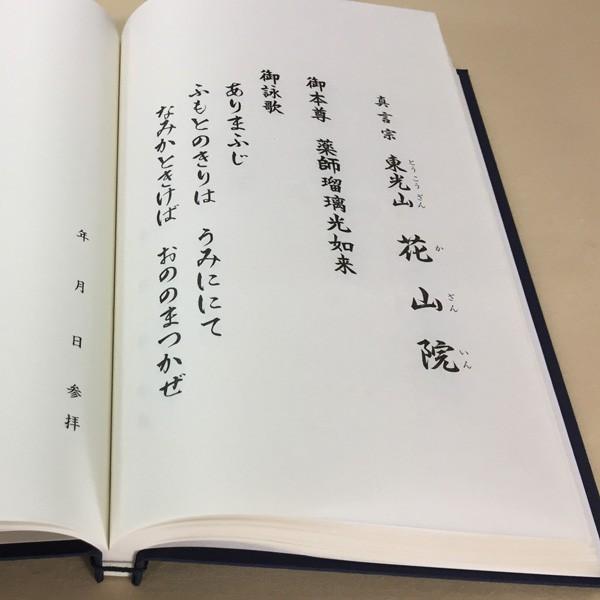 真言宗 東光山 花山院
とうこうざん かざんいん
御本尊 薬師瑠璃光如来
御詠歌
ありまふじ
ふもとのきりは うみににて
なみかときけば おののまつかぜ
年 月 日 参拝